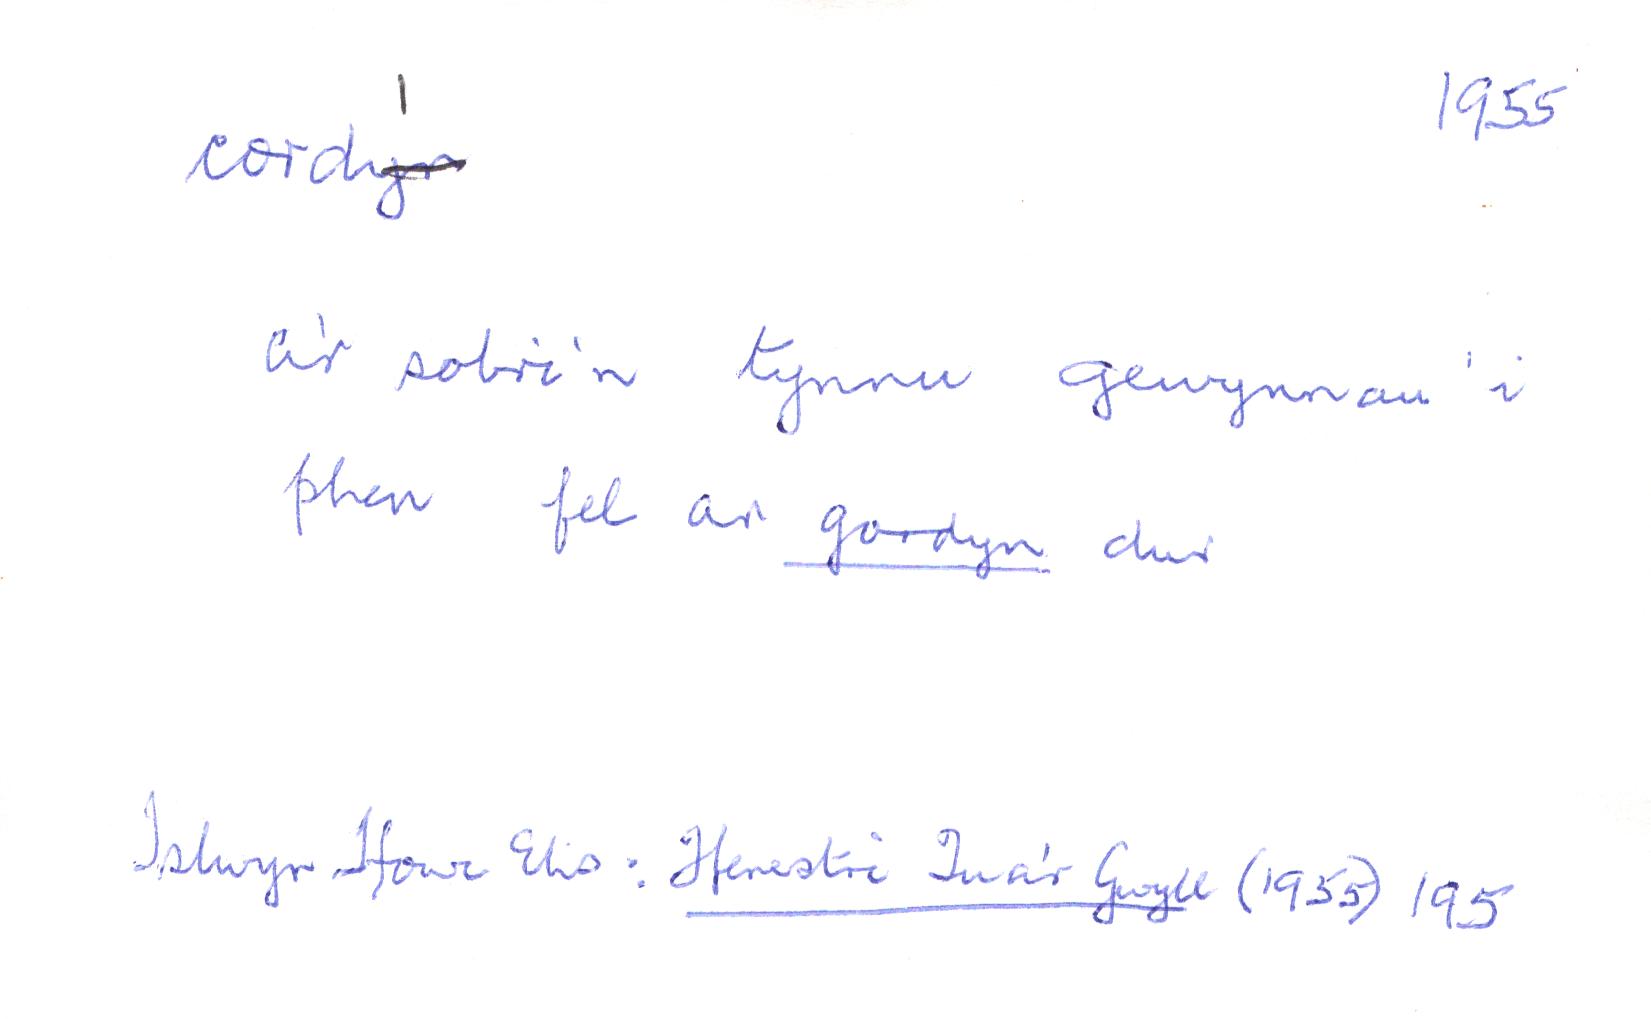 1955
cordyn
a'r sobri'n tynnu gewynnau'i
phen fel ar gordyn dur
Islwyn Ffowc Elis : Ffenestri Tua'r Gwyll (1955) 195